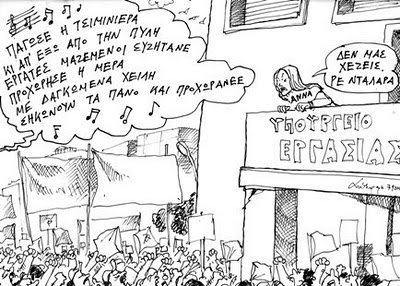 ΠΑΓΩΣΕ Η ΤΣΙΜΙΝΙΕΡΑ
ΚΙ ΑΠ ΕΞΩ ΑΠΟ ΤΗΝ ΠΥΛΗ
ΕΡΓΑΤΕΣ ΜΑΖΕΜΕΝΟΙ ΣΥΖΗΤΑΝΕ
ΠΡΟΧΩΡΗΣΕ Η ΜΕΡΑ
ΜΕ ΔΑΓΚΩΜΕΝΑ ΧΕΙΛΗ
ΣΗΚΩΝΟΥΝ ΤΑ ΠΑΝΟ ΚΑΙ ΠΡΟΧΩΡΑΝΕΕ
ΔΕΝ ΜΑΣ
ΧΕΖΕΙΣ,
ΡΕ ΝΤΑΛΑΡΑ
ΑΝΝΑ
ΥΠΟΥΡΓΕΙΟ
ΕΡΓΑΣΙΑΣ